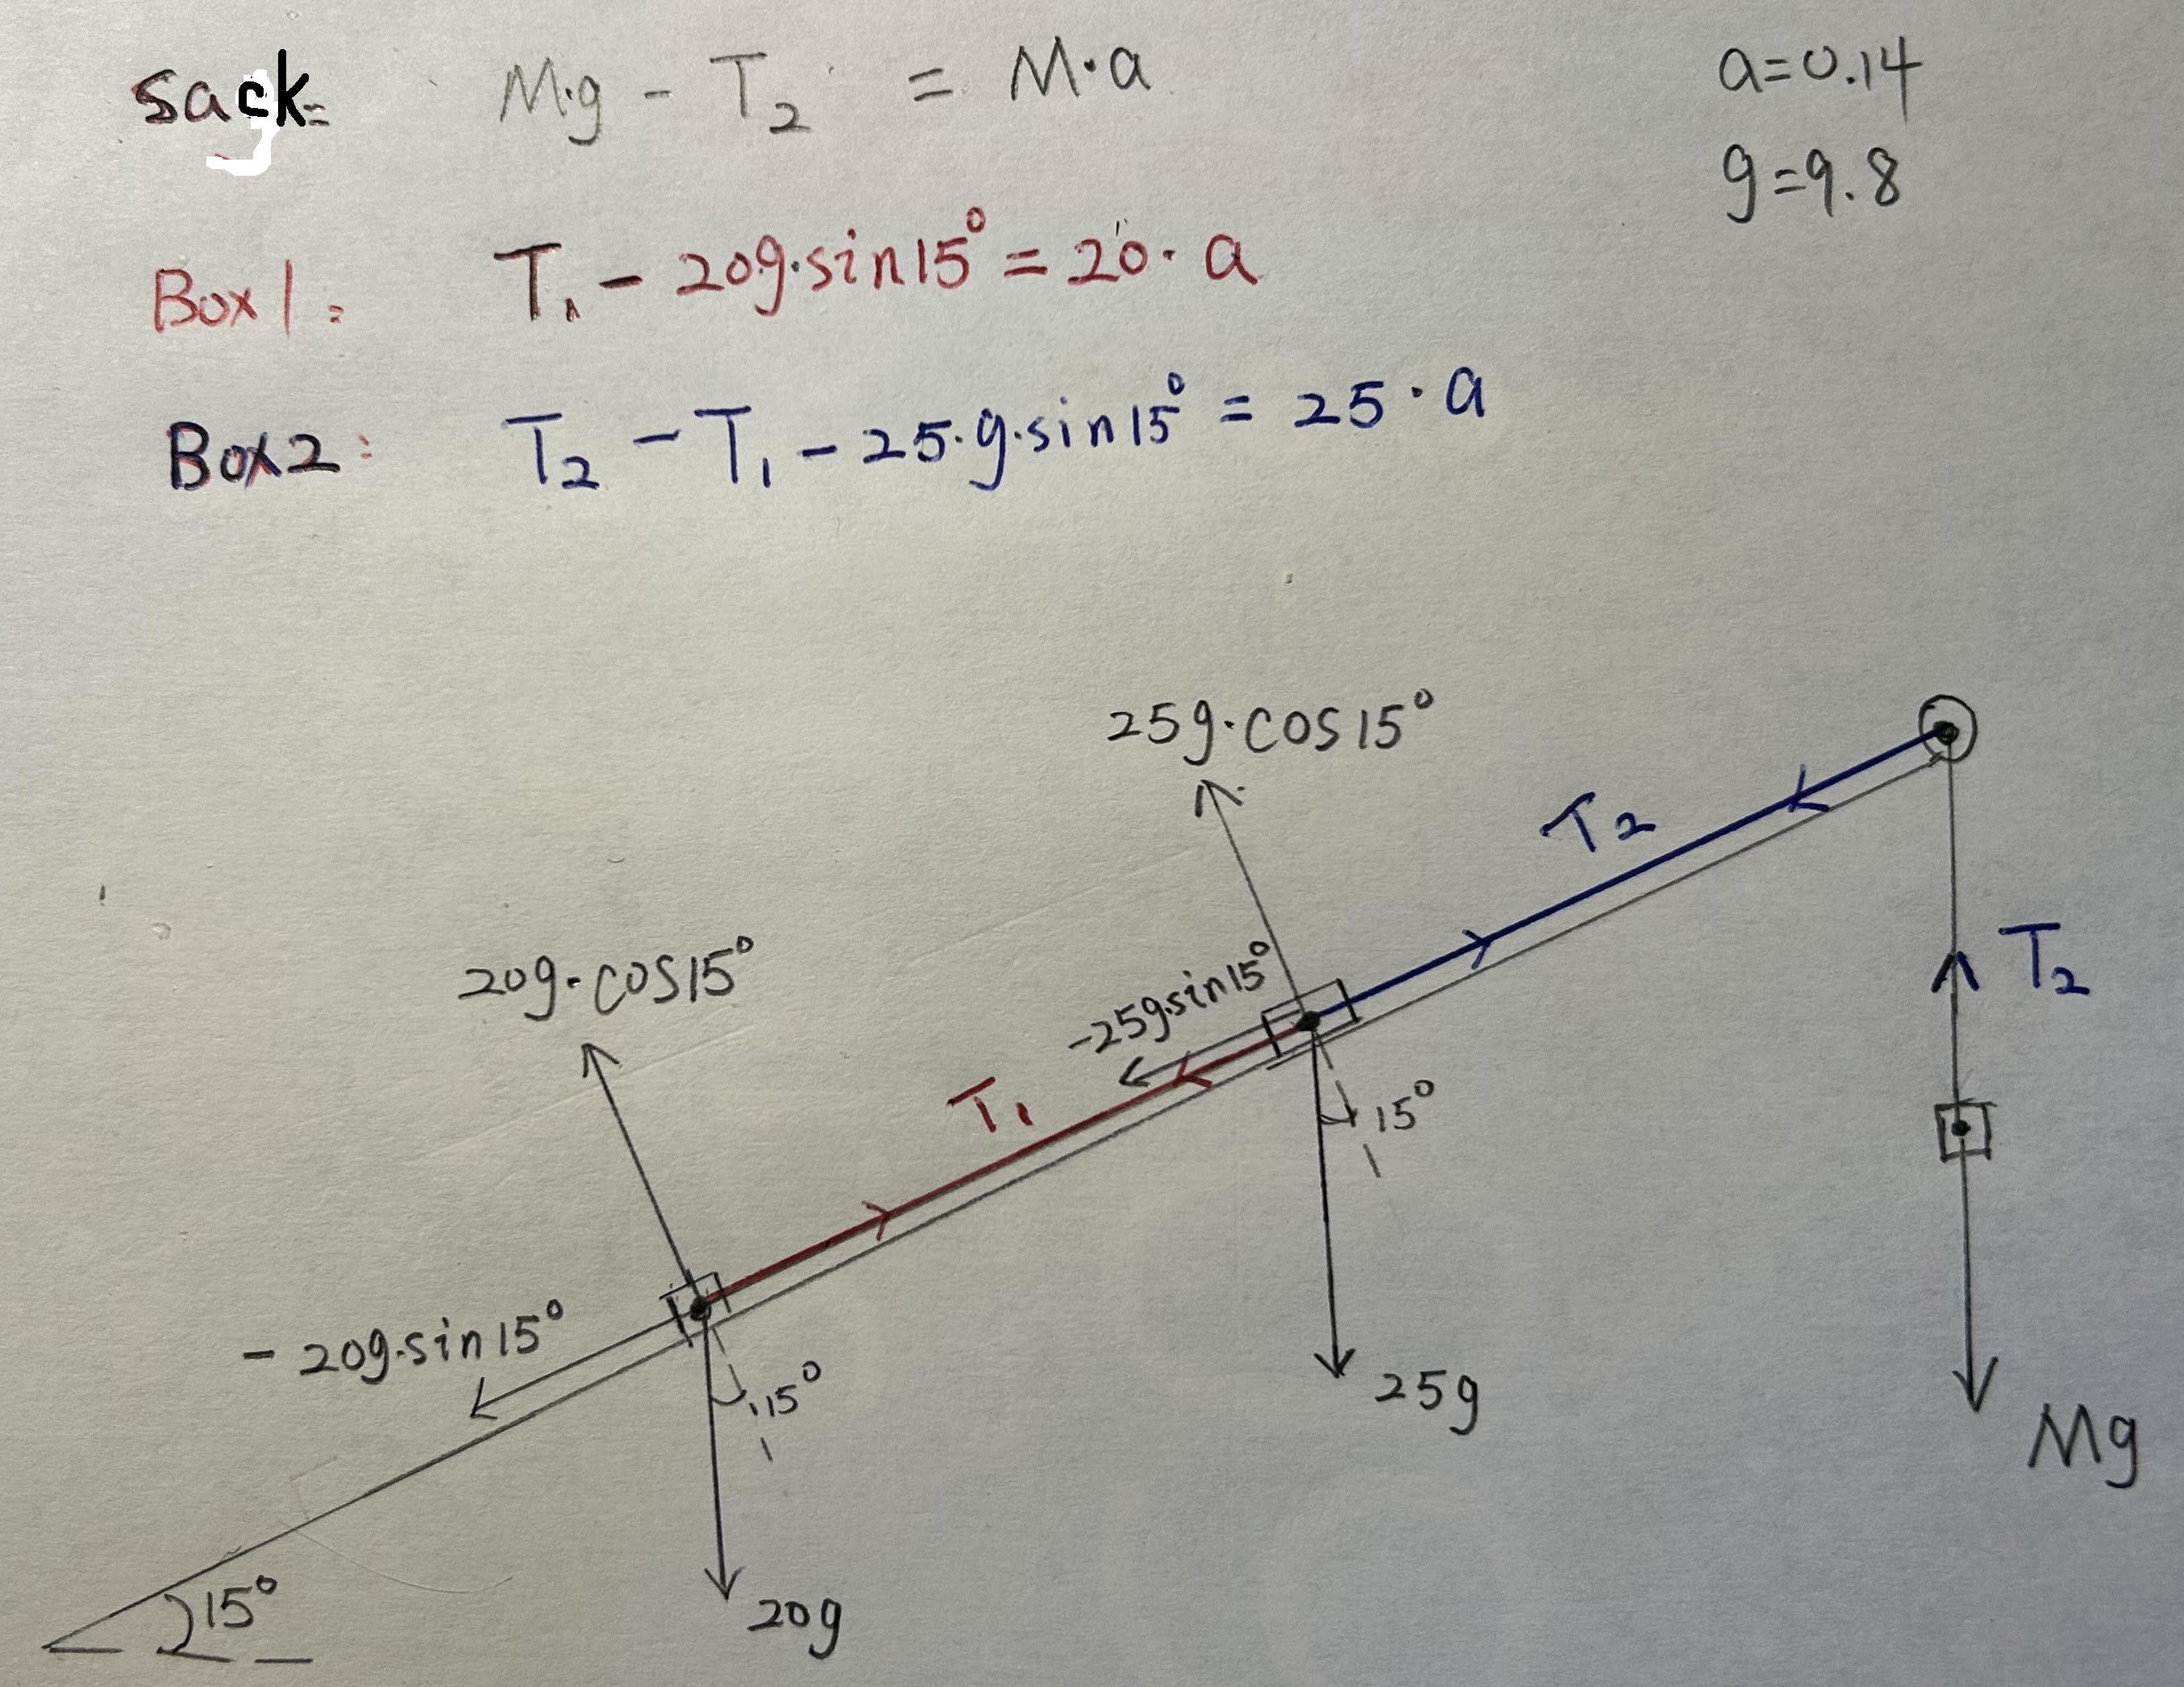 sack= M·g - T₂ = M·a
a=0.14
g=9.8
Box1: T₁ - 20g·sin15° = 20·a
Box2: T₂ - T₁ - 25·g·sin15° = 25·a
25g·cos15°
T₂
20g·cos15°
-25g·sin15°
T₂
T₁
15°
- 20g·sin15°
15°
25g
Mg
15°
20g